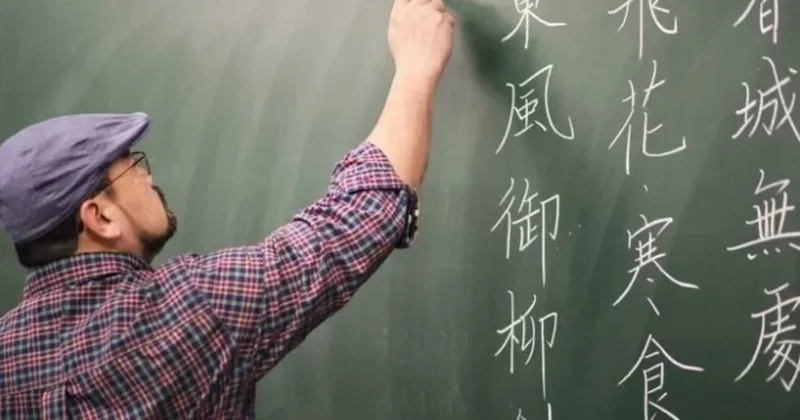 春城無處
飛花寒食
東風御柳